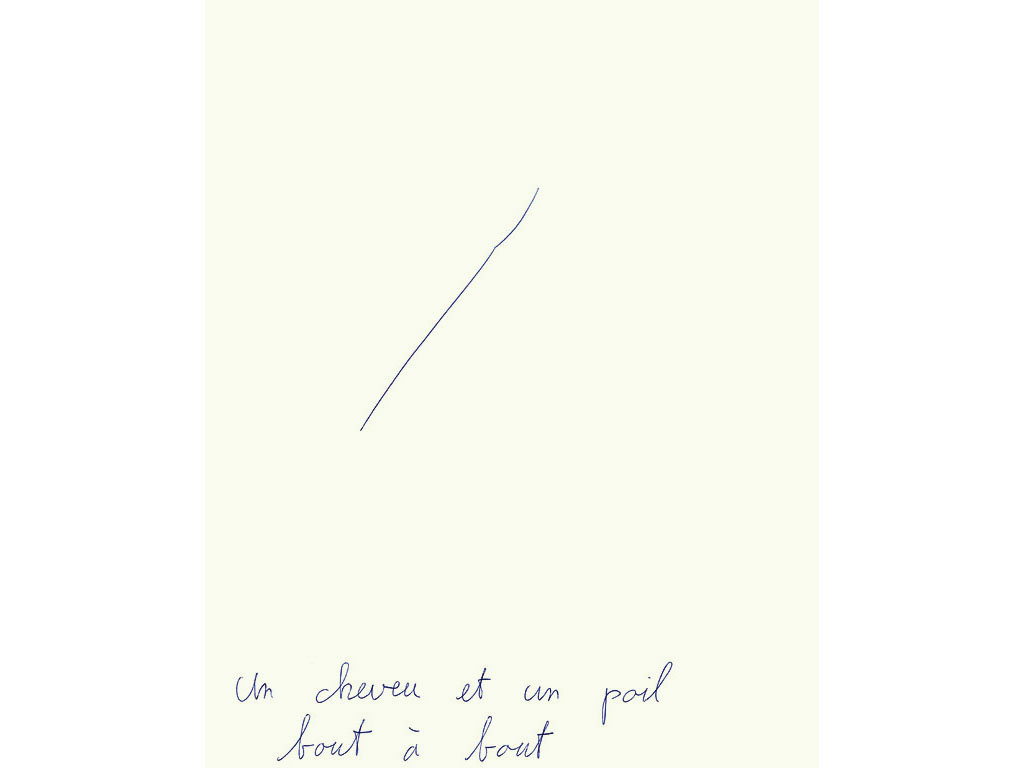 Un cheveu et un poil
bout à bout